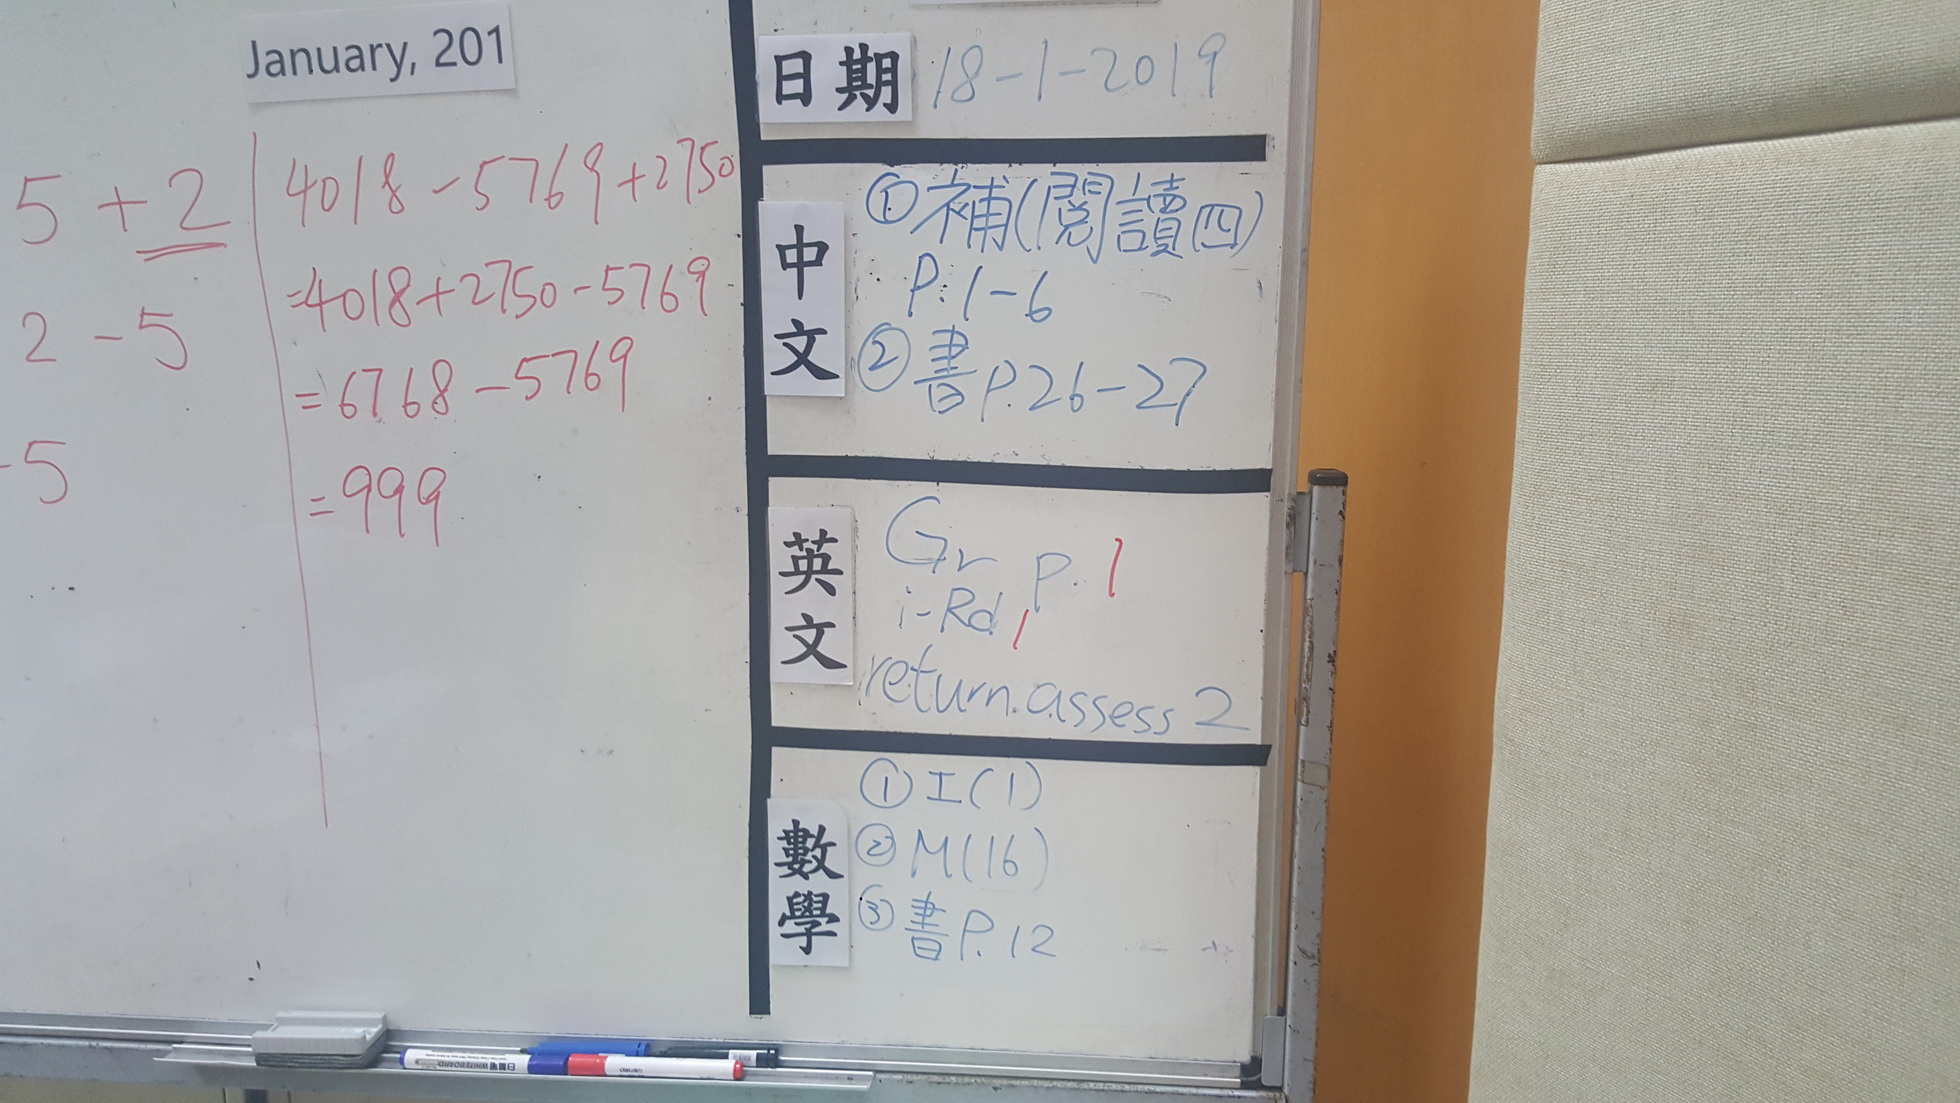 January, 201
5 + 2
2 - 5
-5
4018 - 5769 + 2750
=4018+2750-5769
= 6768 - 5769
= 999
日期 18-1-2019
中文
① 補(閱讀四)
P.1-6
② 書 P.26-27
英文
Gr P. 1
i-Rd 1
return assess 2
數學
① 工(1)
② M(16)
③ 書 P.12
WHITEBOARD